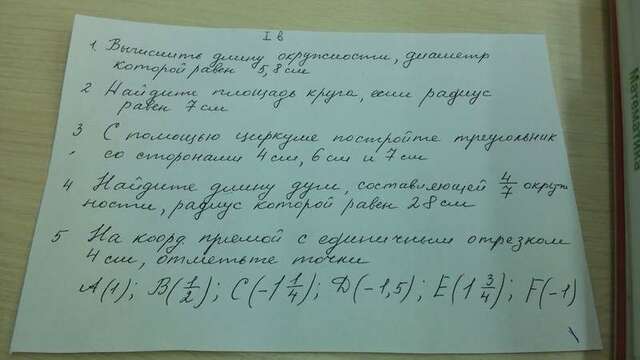 I в
1. Вычислить длину окружности, диаметр
которой равен 5,8 см
2 Найдите площадь круга, если радиус
равен 7 см
3 С помощью циркуля постройте треугольник
со сторонами 4 см, 6 см и 7 см
4 Найдите длину дуги, составляющей 4/7 окруж
ности, радиус которой равен 28 см
5 На коорд. прямой с единичным отрезком
4 см, отметьте точки
A(1); B(1/2); C(-1 1/4); D(-1,5); E(1 3/4); F(-1)